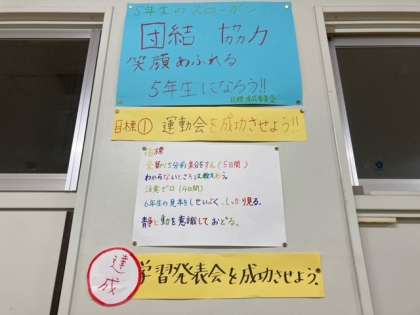 5年生のスローガン
団結 協力
笑顔あふれる
5年生になろう!!
目標① 運動会を成功させよう!!
指標
分前集合をする(5日間)
わからないところは教え
注意ゼロ(4日間)
6年生の見本をし、しっかり見る。
静と動を意識しておどる。
達成
学習発表会を成功させよう。